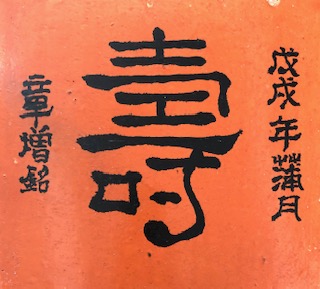 戊戌年蒲月
壽
章增銘